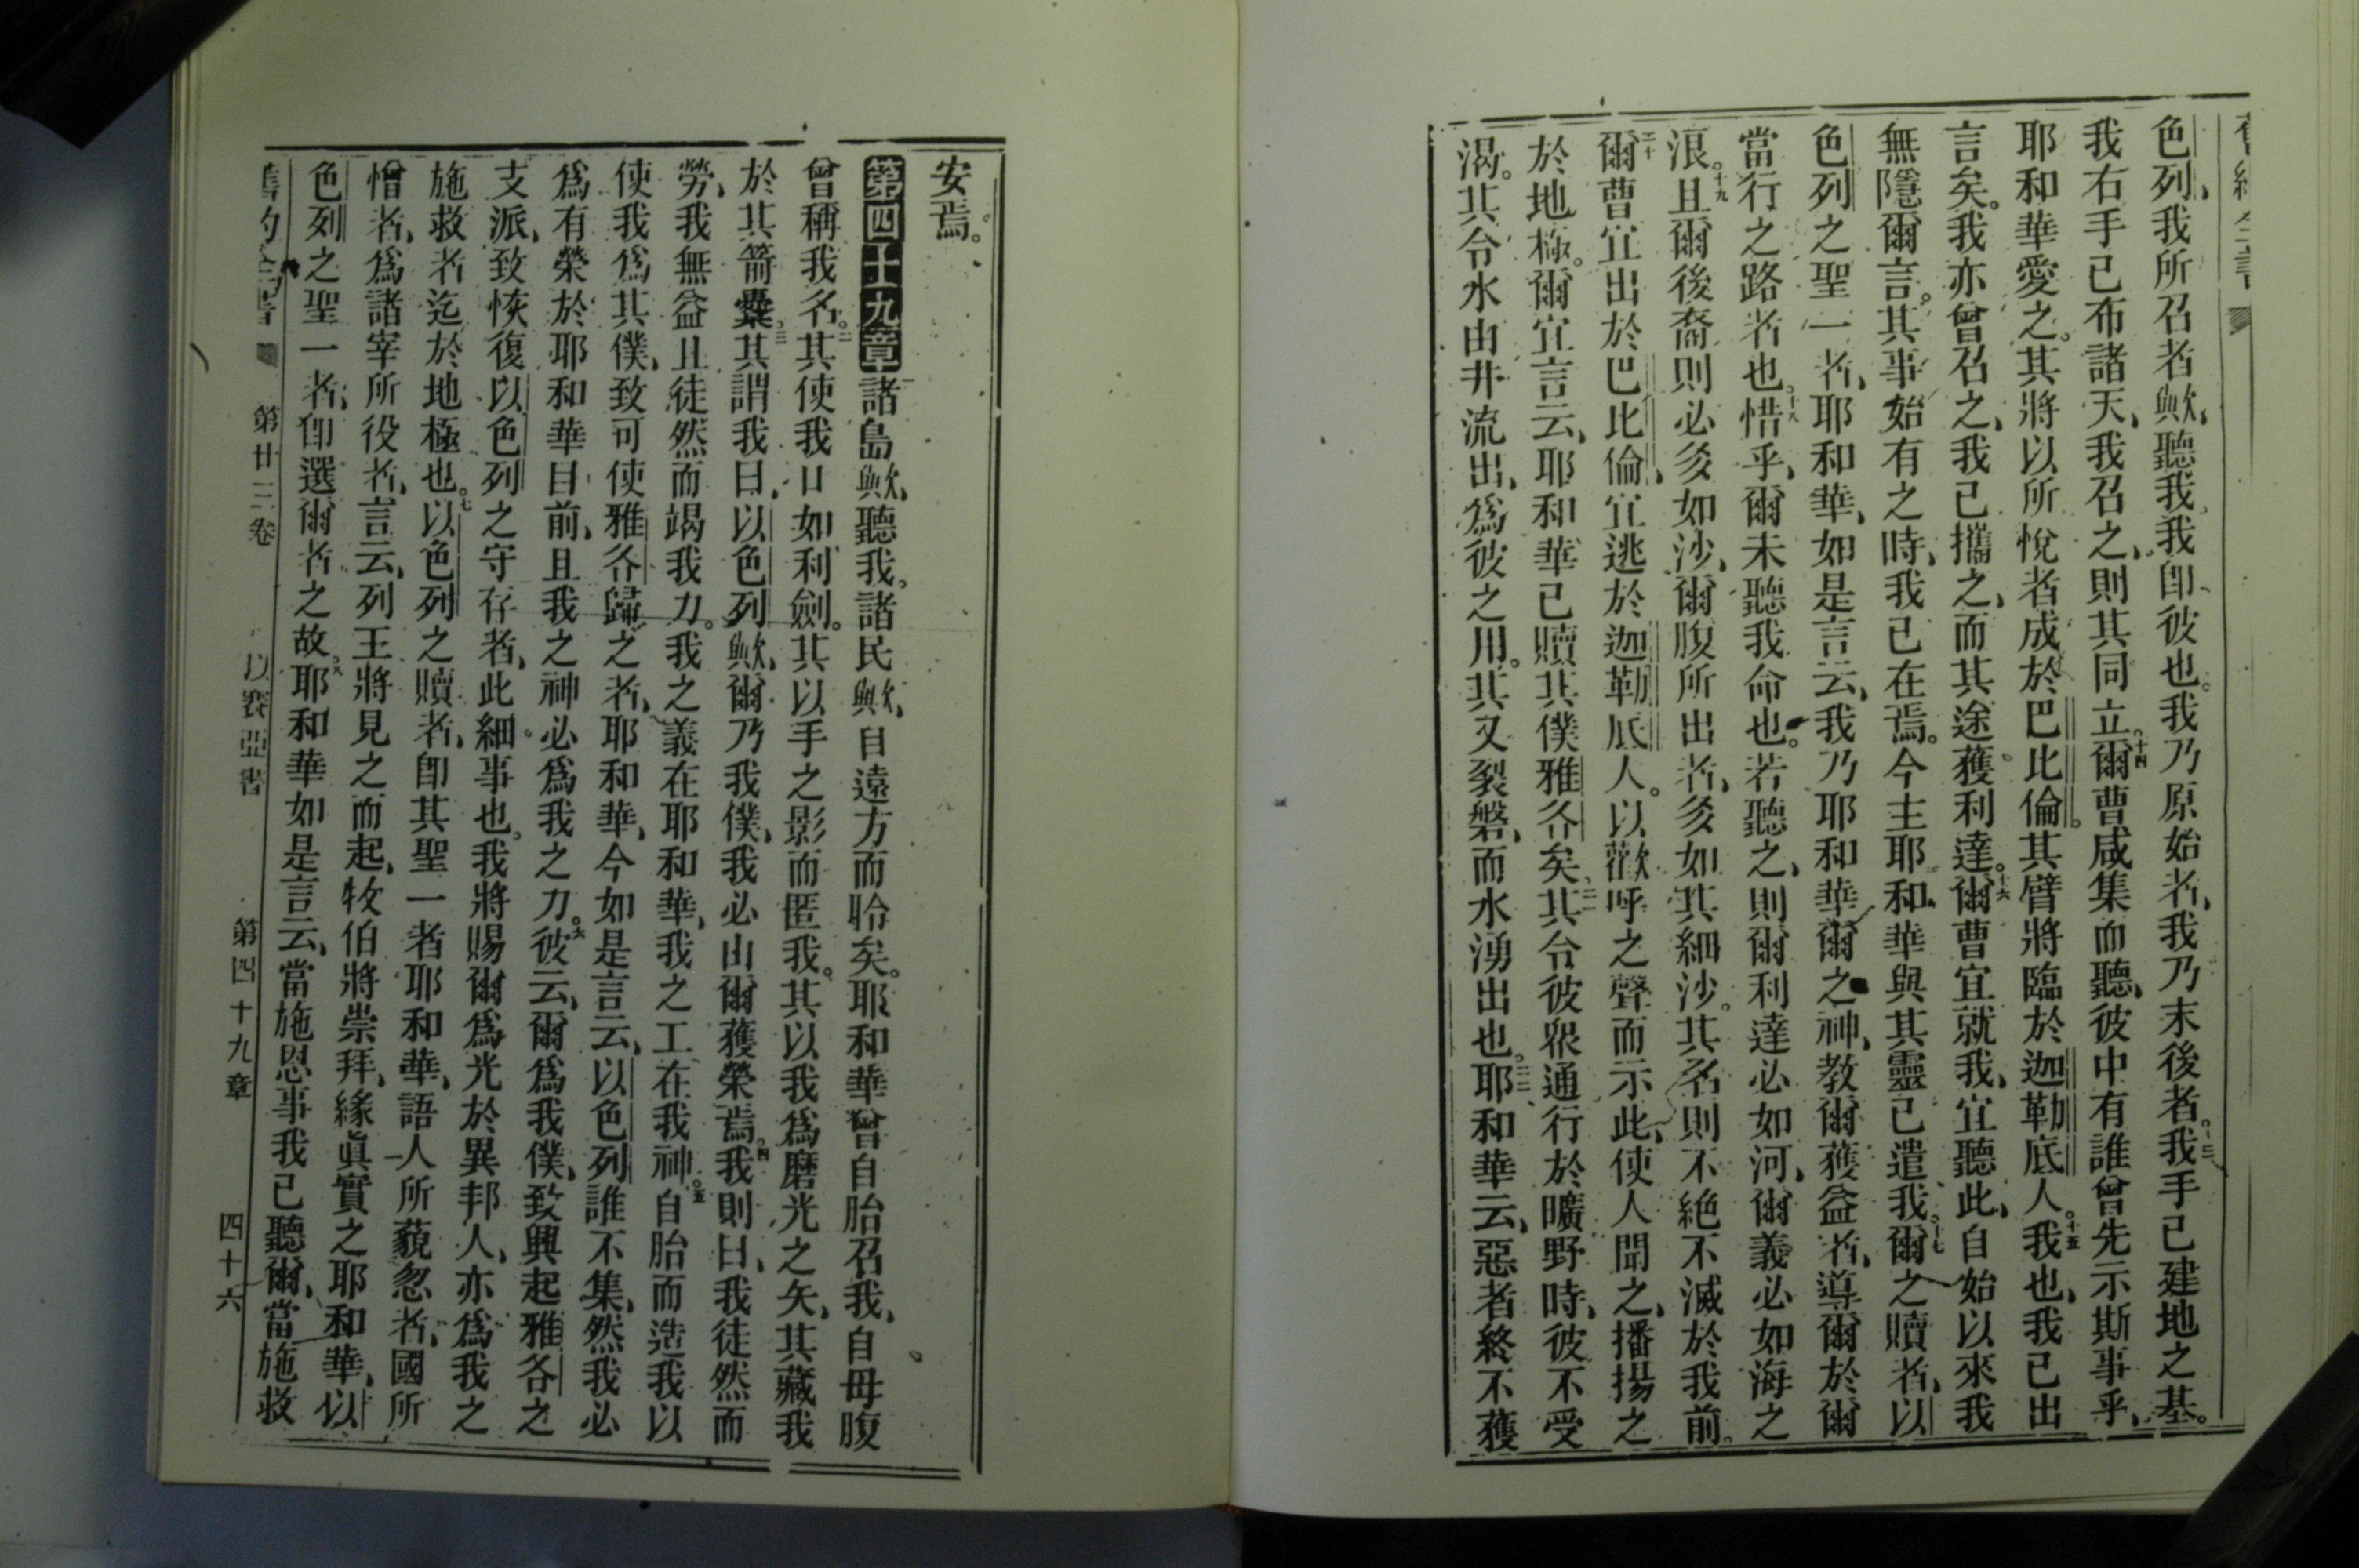 色列、我所召者歟、聽我、我卽彼也。我乃原始者、我乃末後者。十三我手已建地之基。
我右手已布諸天、我召之、則其同立。十四爾曹咸集而聽、彼中有誰曾先示斯事乎、
耶和華愛之。其將以所悅者成於巴比倫。其臂將臨於迦勒底人。十五我也、我已出
言矣。我亦曾召之、我已攜之、而其途獲利達。十六爾曹宜就我、宜聽此、自始以來我
無隱爾言。其事始有之時、我已在焉。今主耶和華與其靈已遣我。十七爾之贖者、以
色列之聖一者、耶和華、如是言云、我乃耶和華爾之神、教爾獲益者、導爾於爾
當行之路者也。十八惜乎、爾未聽我命也。若聽之、則爾利達必如河、爾義必如海之
浪。十九且爾後裔則必多如沙、爾腹所出者、多如其細沙。其名則不絕不滅於我前。
二十爾曹宜出於巴比倫、宜逃於迦勒底人。以歡呼之聲而示此、使人聞之、播揚之
於地極。爾宜言云、耶和華已贖其僕雅各矣。其令彼衆通行於曠野時、彼不受
渴。其令水由井流出、爲彼之用。其又裂磐、而水湧出也。耶和華云、惡者終不獲
安焉。
第四十九章諸島歟、聽我。諸民歟、自遠方而聆矣。耶和華曾自胎召我、自母腹
曾稱我名。二其使我口如利劍。其以手之影而匿我。其以我爲磨光之矢、其藏我
於其箭囊。三其謂我曰、以色列歟、爾乃我僕、我必由爾獲榮焉。四我則曰、我徒然而
勞、我無益且徒然而竭我力。我之義在耶和華、我之工在我神。五自胎而造我以
使我爲其僕、致可使雅各歸之者、耶和華、今如是言云、以色列誰不集、然我必
爲有榮於耶和華目前、且我之神必爲我之力。六彼云、爾爲我僕、致興起雅各之
支派、致恢復以色列之守存者、此細事也。我將賜爾爲光於異邦人、亦爲我之
施救者迄於地極也。七以色列之贖者、卽其聖一者耶和華、語人所藐忽者、國所
憎者、爲諸宰所役者、言云、列王將見之而起、牧伯將崇拜、緣眞實之耶和華、以
色列之聖一者、卽選爾者之故。八耶和華如是言云、當施恩事我已聽爾、當施救
舊約全書 第廿三卷 以賽亞書 第四十九章 四十六